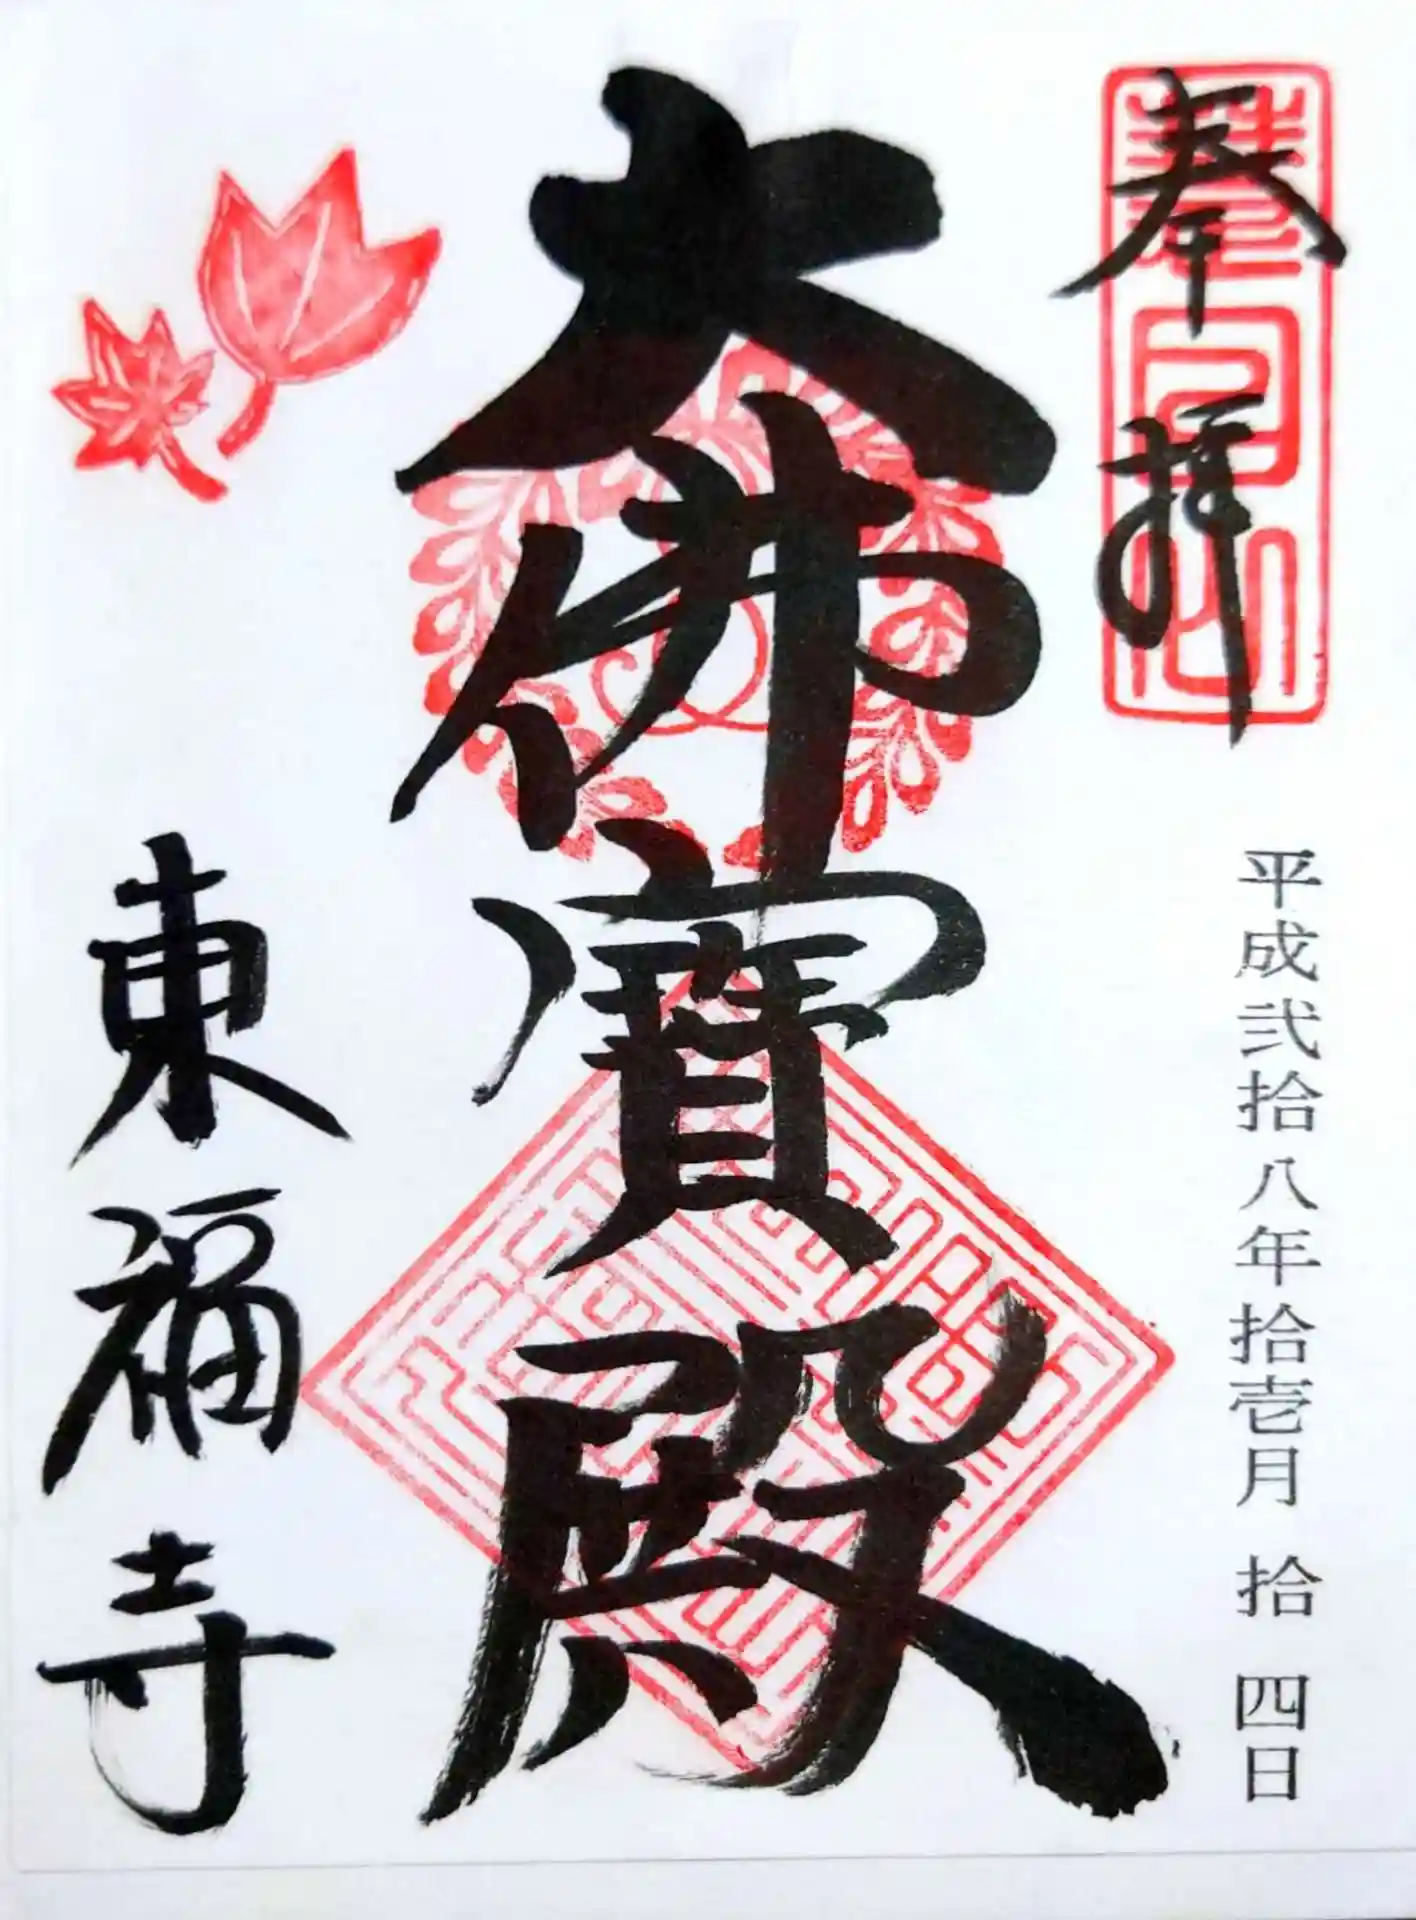 奉拝
平成弐拾八年拾壱月 拾 四日
大佛寳殿
東福寺